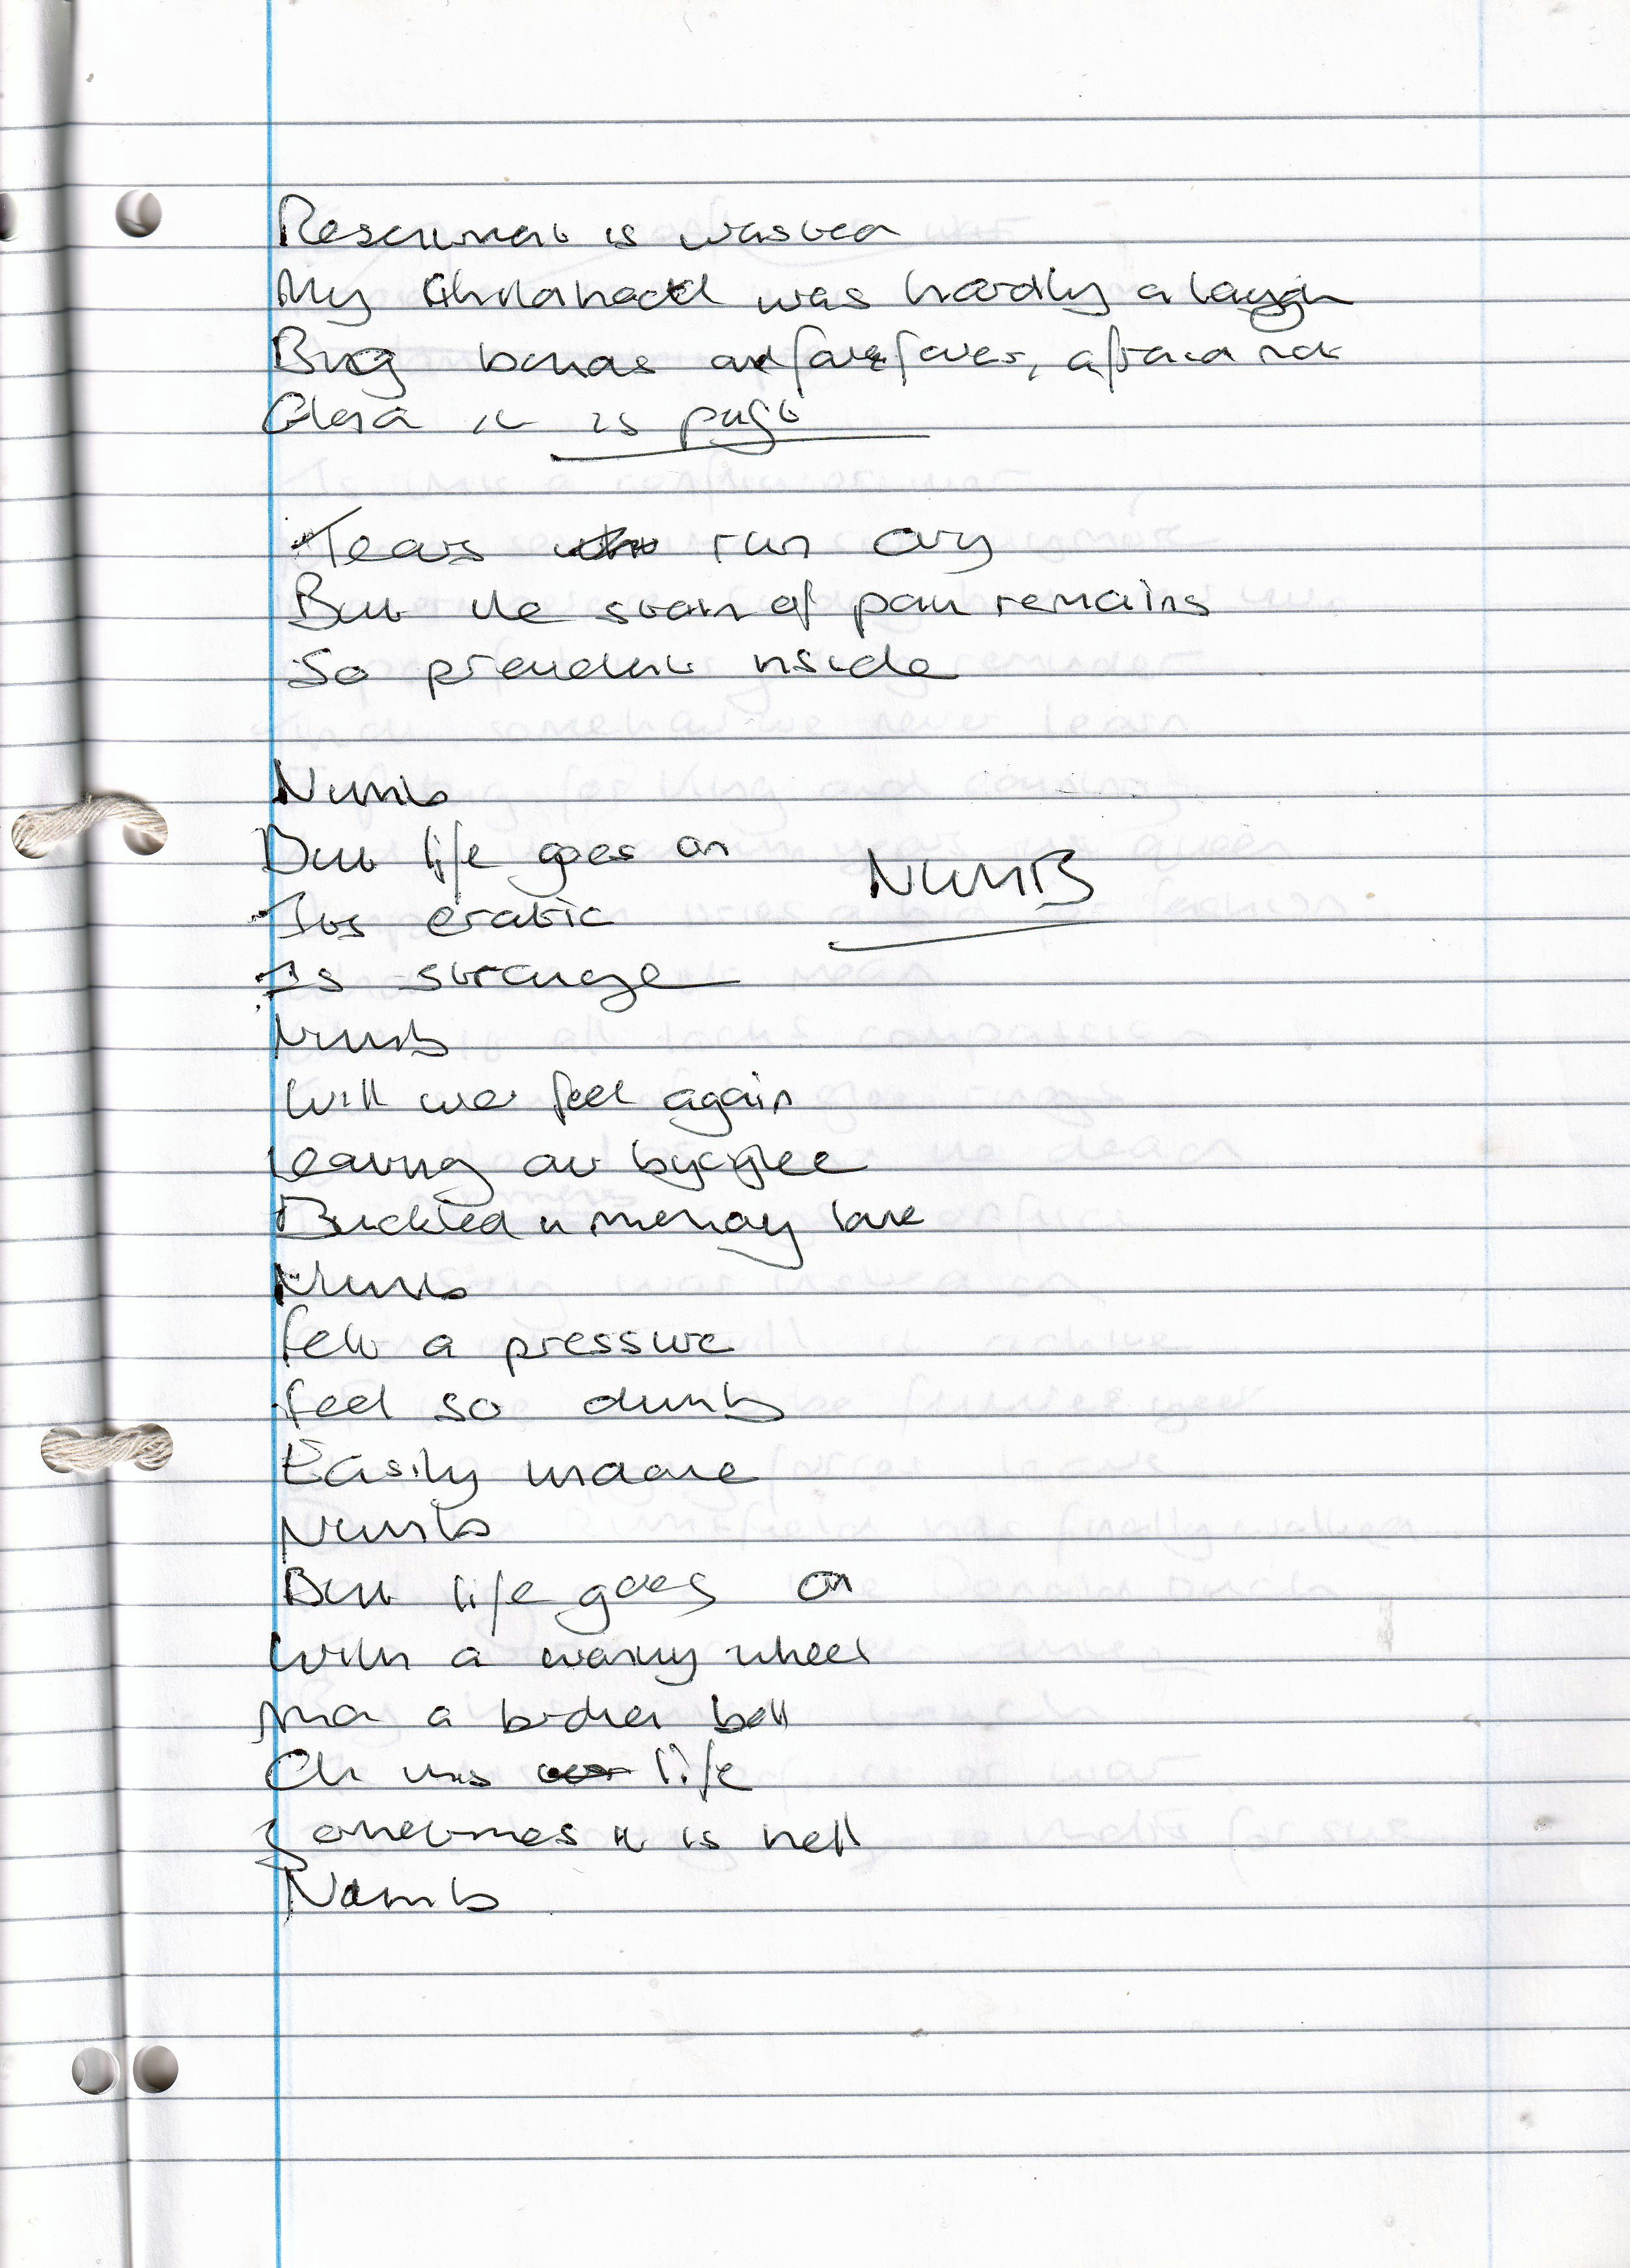 Resentment is wasted
My childhood was hardly a laugh
Big bands and forefaver, afraid not
Glad it is past
Tears run dry
But the stain of pain remains
So prevelent inside
Numb
But life goes on
NUMB
Its eratic
Is strange
Numb
Will we feel again
Leaving a bycycle
Buckled in memory lane
Numb
Felt a pressure
Feel so dumb
Easily undone
Numb
But life goes on
With a wonky wheel
And a broken bell
Oh this life
Sometimes it is hell
Numb